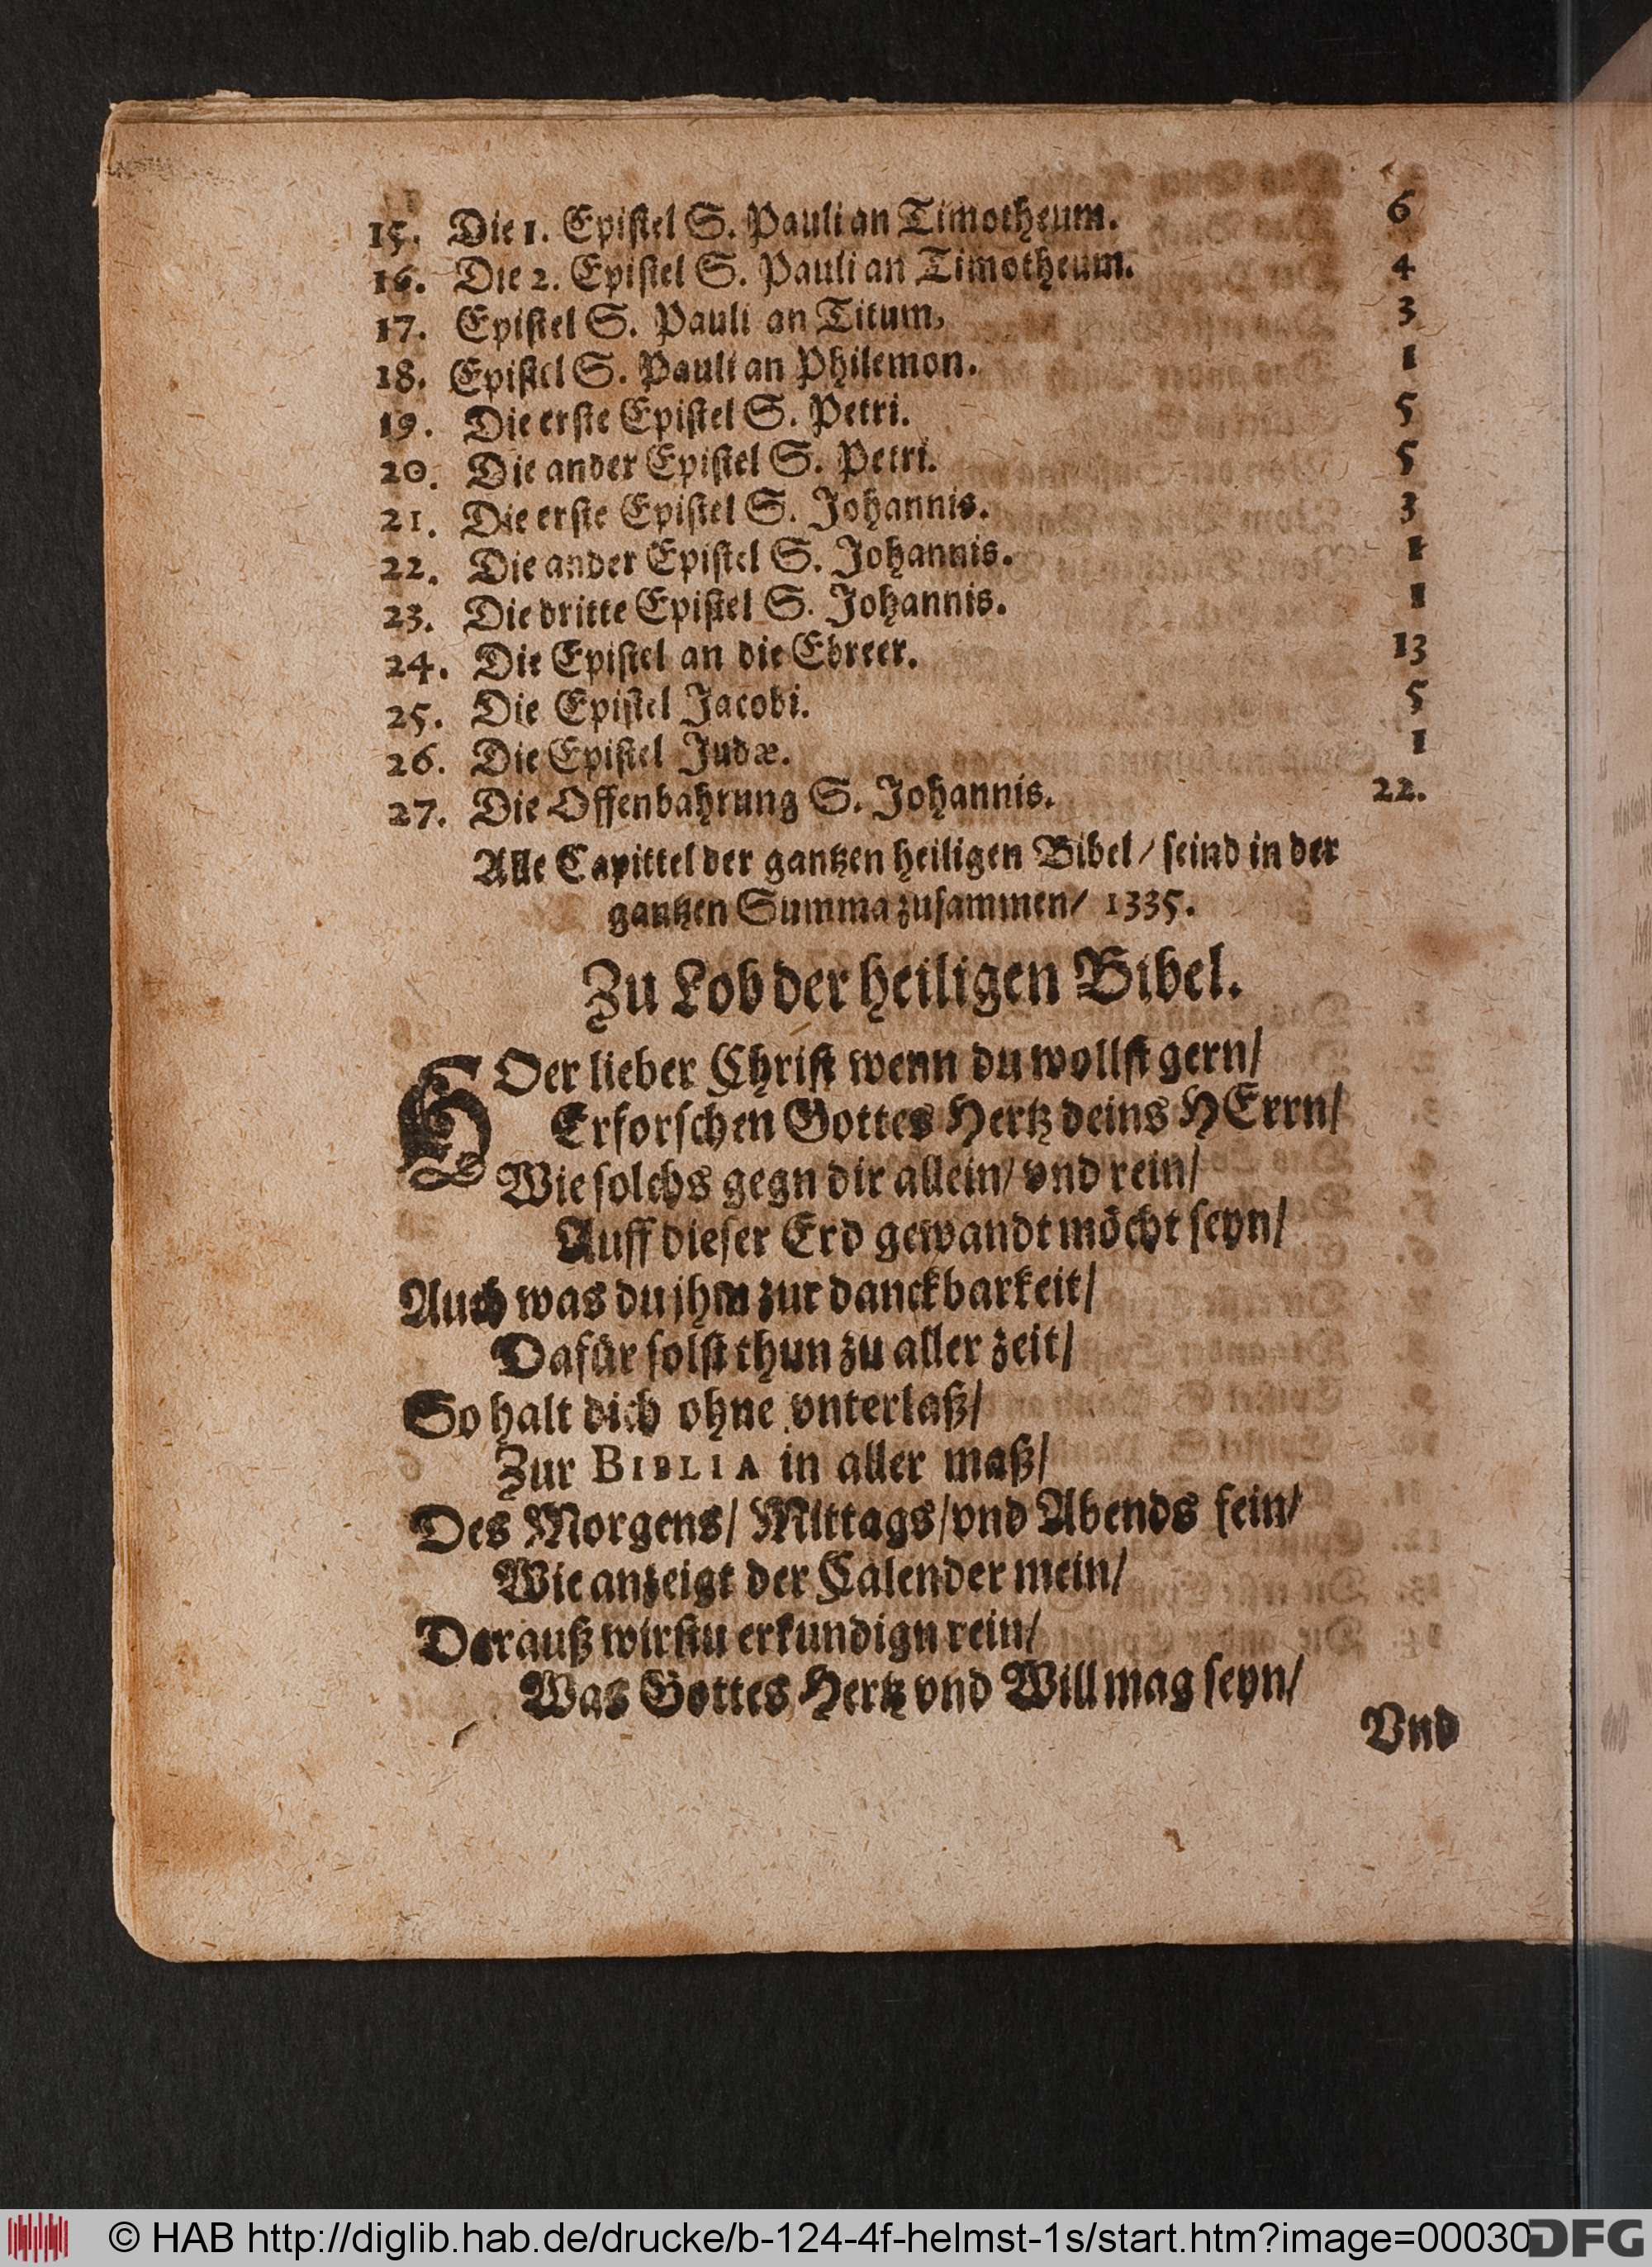 15. Die 1. Epistel S. Pauli an Timotheum. 6
16. Die 2. Epistel S. Pauli an Timotheum. 4
17. Epistel S. Pauli an Titum, 3
18. Epistel S. Pauli an Philemon. 1
19. Die erste Epistel S. Petri. 5
20. Die ander Epistel S. Petri. 5
21. Die erste Epistel S. Johannis. 3
22. Die ander Epistel S. Johannis. 1
23. Die dritte Epistel S. Johannis. 1
24. Die Epistel an die Ebreer. 13
25. Die Epistel Jacobi. 5
26. Die Epistel Judæ. 1
27. Die Offenbahrung S. Johannis. 22.
Alle Capittel der gantzen heiligen Bibel / seind in der
gantzen Summa zusammen / 1335.
Zu Lob der heiligen Bibel.
HOer lieber Christ wenn du wollst gern /
Erforschen Gottes Hertz deins HErrn /
Wie solchs gegn dir allein / vnd rein /
Auff dieser Erd gewandt möcht seyn /
Auch was du jhm zur danckbarkeit /
Dafür solst thun zu aller zeit /
So halt dich ohne vnterlaß /
Zur BIBLIA in aller maß /
Des Morgens / Mittags / vnd Abends fein /
Wie anzeigt der Calender mein /
Darauß wirstu erkundign rein /
Was Gottes Hertz vnd Will mag seyn /
Vnd
© HAB http://diglib.hab.de/drucke/b-124-4f-helmst-1s/start.htm?image=00030
DFG